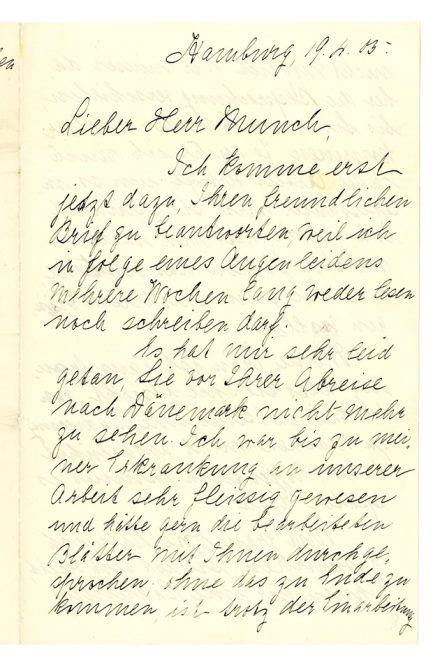 Hamburg, 19.4.05.
Lieber Herr Munch,
Ich komme erst
jetzt dazu, Ihren freundlichen
Brief zu beantworten, weil ich
in folge eines Augenleidens
mehrere Wochen lang weder lesen
noch schreiben darf.
Es hat mir sehr leid
getan, Sie vor Ihrer Abreise
nach Dänemark nicht mehr
zu sehen. Ich war bis zu mei-
ner Erkrankung an unserer
Arbeit sehr fleissig gewesen
und hätte gern die bearbeiteten
Blätter mit Ihnen durchge-
sprochen, ohne das zu Ende zu
kommen, ist trotz der Einarbeitung